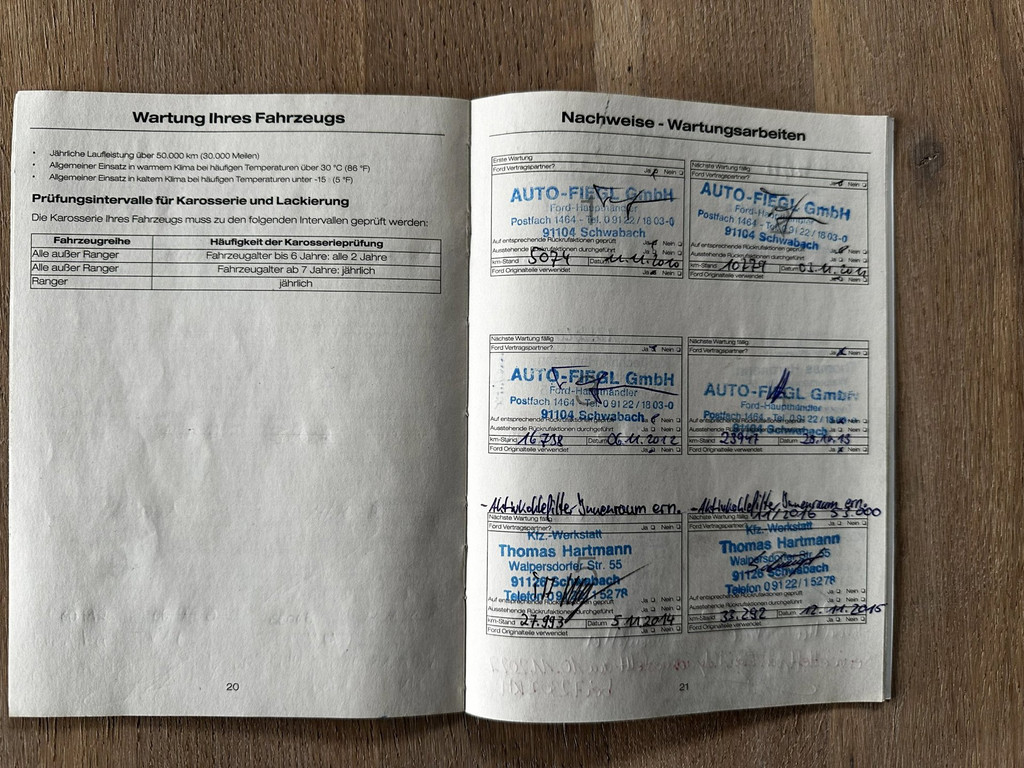 Wartung Ihres Fahrzeugs
• Jährliche Laufleistung über 50.000 km (30.000 Meilen)
• Allgemeiner Einsatz in warmem Klima bei häufigen Temperaturen über 30 °C (86 °F)
• Allgemeiner Einsatz in kaltem Klima bei häufigen Temperaturen unter -15 (5 °F)
Prüfungsintervalle für Karosserie und Lackierung
Die Karosserie Ihres Fahrzeugs muss zu den folgenden Intervallen geprüft werden:
Fahrzeugreihe Häufigkeit der Karosserieprüfung
Alle außer Ranger Fahrzeugalter bis 6 Jahre: alle 2 Jahre
Alle außer Ranger Fahrzeugalter ab 7 Jahre: jährlich
Ranger jährlich
20
Nachweise - Wartungsarbeiten
Erste Wartung
Ford Vertragspartner? Ja Nein
AUTO-FIEGL GmbH
Ford-Haupthändler
Postfach 1464 - Tel. 0 91 22 / 18 03-0
91104 Schwabach
Auf entsprechende Rückrufaktionen geprüft Ja Nein
Ausstehende Rückrufaktionen durchgeführt Ja Nein
km-Stand 5074 Datum 11.11.2010
Ford Originalteile verwendet Ja Nein
Nächste Wartung fällig
Ford Vertragspartner? Ja Nein
AUTO-FIEGL GmbH
Ford-Haupthändler
Postfach 1464 - Tel. 0 91 22 / 18 03-0
91104 Schwabach
Auf entsprechende Rückrufaktionen geprüft Ja Nein
Ausstehende Rückrufaktionen durchgeführt Ja Nein
km-Stand Datum
Ford Originalteile verwendet Ja Nein
Nächste Wartung fällig
Ford Vertragspartner? Ja Nein
AUTO-FIEGL GmbH
Ford-Haupthändler
Postfach 1464 - Tel. 0 91 22 / 18 03-0
91104 Schwabach
Auf entsprechende Rückrufaktionen geprüft Ja Nein
Ausstehende Rückrufaktionen durchgeführt Ja Nein
km-Stand 16738 Datum 06.11.2012
Ford Originalteile verwendet Ja Nein
Nächste Wartung fällig
Ford Vertragspartner? Ja Nein
AUTO-FIEGL GmbH
Ford-Haupthändler
Postfach 1464 - Tel. 0 91 22 / 18 03-0
91104 Schwabach
Auf entsprechende Rückrufaktionen geprüft Ja Nein
Ausstehende Rückrufaktionen durchgeführt Ja Nein
km-Stand 23947 Datum
Ford Originalteile verwendet Ja Nein
- Aktivkohlefilter Innenraum ern.
Nächste Wartung fällig
Ford Vertragspartner?
Kfz.-Werkstatt
Thomas Hartmann
Walpersdorfer Str. 55
91126 Schwabach
Telefon 09122/15278
Auf entsprechende Rückrufaktionen geprüft Ja Nein
Ausstehende Rückrufaktionen durchgeführt Ja Nein
km-Stand 27.993 Datum 5.11.2014
Ford Originalteile verwendet Ja Nein
- Aktivkohlefilter Innenraum ern.
Nächste Wartung fällig 11/2016
Ford Vertragspartner?
Kfz.-Werkstatt
Thomas Hartmann
Walpersdorfer Str. 55
91126 Schwabach
Telefon 09122/15278
Auf entsprechende Rückrufaktionen geprüft Ja Nein
Ausstehende Rückrufaktionen durchgeführt Ja Nein
km-Stand 33.292 Datum 12.11.2015
Ford Originalteile verwendet Ja Nein
21